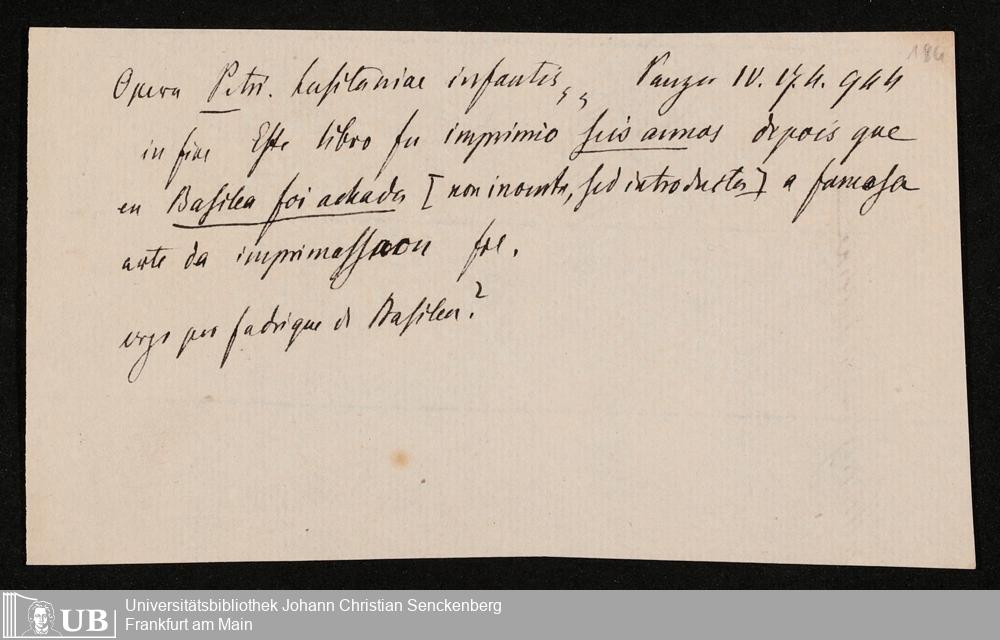 184
Opera Petri. Lusitaniae infantis,, Panzer IV. 174. 944
in fine Este libro fu imprimio seis annos depois que
en Basilea foi achada [non inventa, sed introducta] a famosa
arte da imprimassaon fol.
ergo per fadrique de Basilea?
UB Universitätsbibliothek Johann Christian Senckenberg
Frankfurt am Main